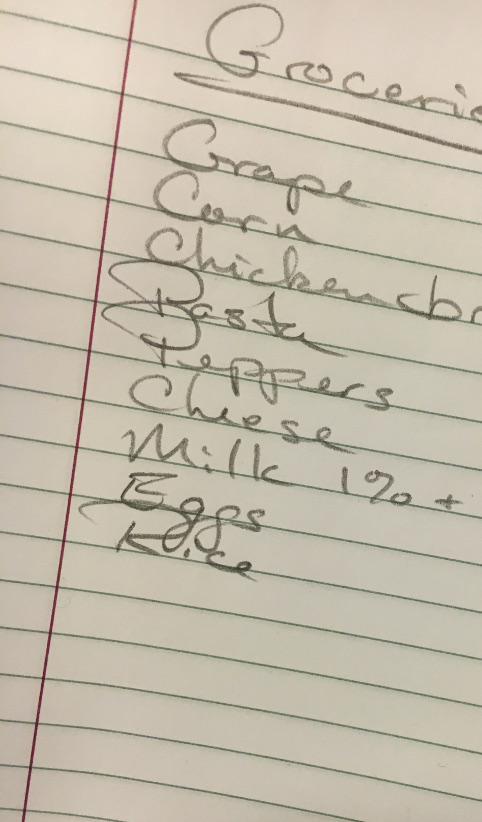 Grocerie
Grape
Corn
Chicken (br
Pasta
Peppers
Cheese
Milk 1% +
Eggs
Rice